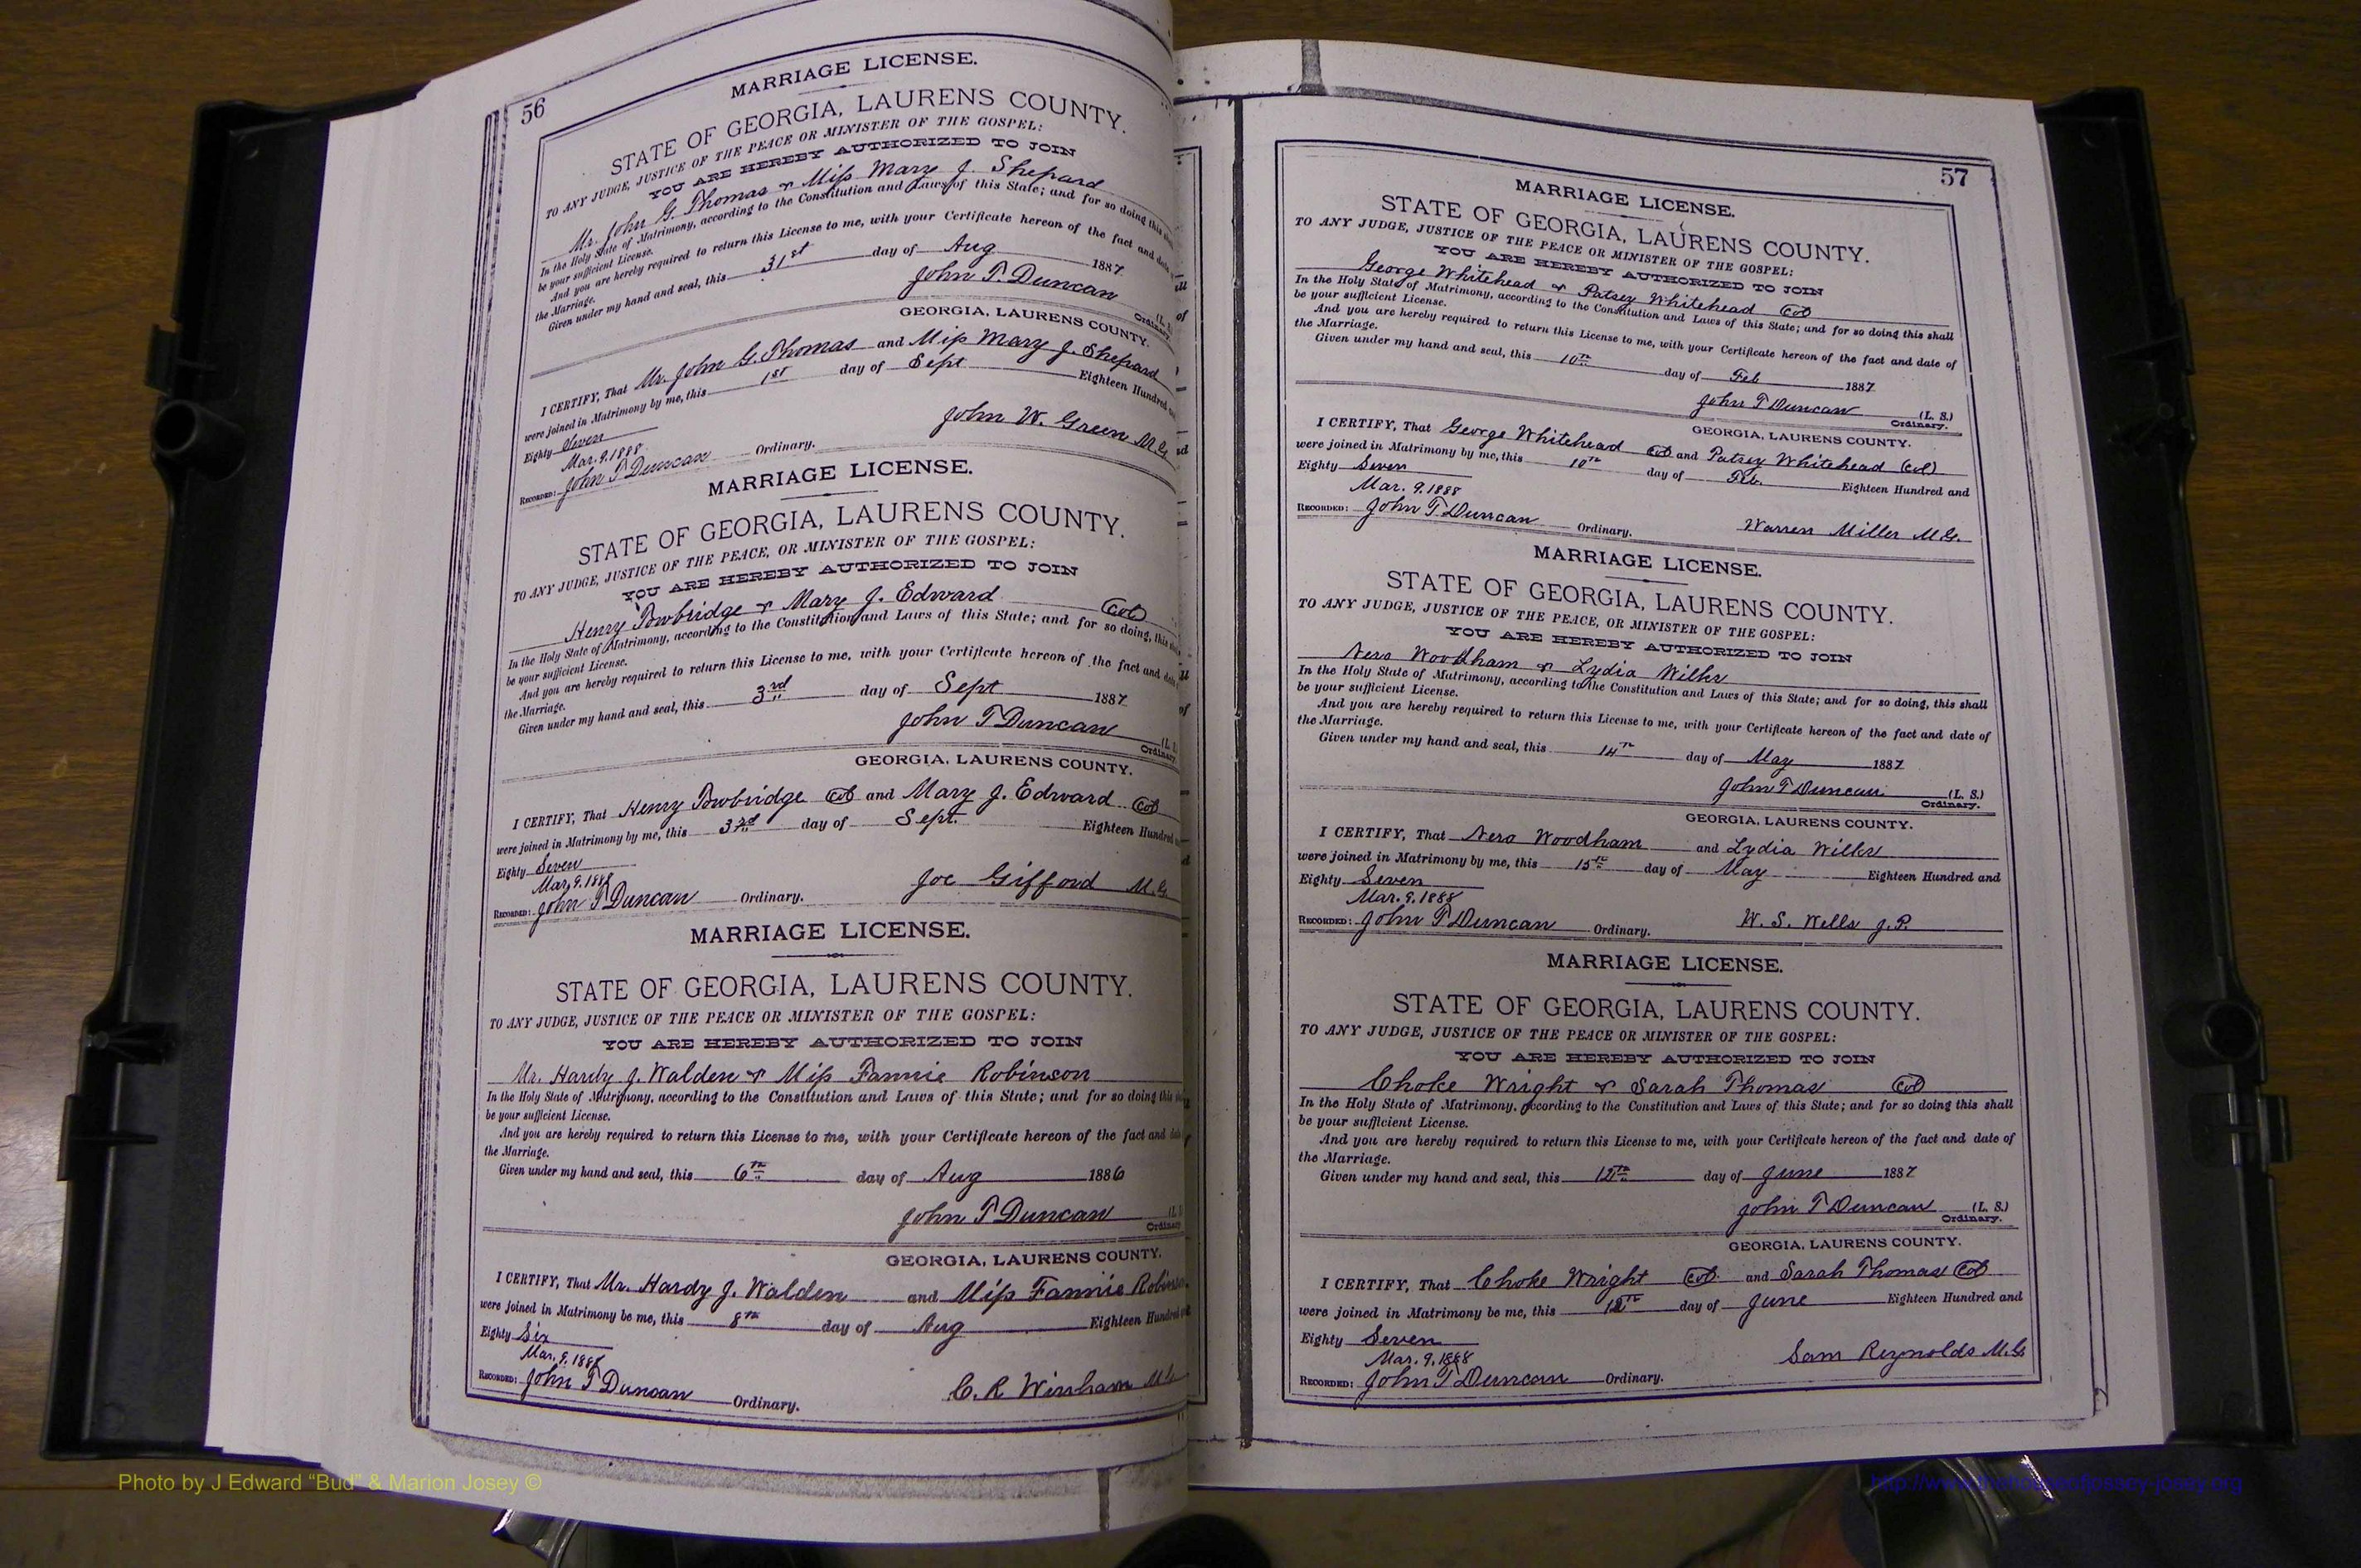 56
MARRIAGE LICENSE.
STATE OF GEORGIA, LAURENS COUNTY.
TO ANY JUDGE, JUSTICE OF THE PEACE OR MINISTER OF THE GOSPEL:
YOU ARE HEREBY AUTHORIZED TO JOIN
Mr. John G. Thomas & Miss Mary J. Shepard
In the Holy State of Matrimony, according to the Constitution and Laws of this State; and for so doing this
be your sufficient License.
And you are hereby required to return this License to me, with your Certificate hereon of the fact and date
the Marriage.
Given under my hand and seal, this 31st day of Aug 1887
John T. Duncan (L. S.
Ordinary.
GEORGIA, LAURENS COUNTY.
I CERTIFY, That Mr. John G. Thomas and Miss Mary J. Shepard
were joined in Matrimony by me, this 1st day of Sept Eighteen Hundred
Eighty Seven
Mar. 9. 1888
John W. Green M.G.
Recorded: John T Duncan Ordinary.
MARRIAGE LICENSE.
STATE OF GEORGIA, LAURENS COUNTY.
TO ANY JUDGE, JUSTICE OF THE PEACE, OR MINISTER OF THE GOSPEL:
YOU ARE HEREBY AUTHORIZED TO JOIN
Henry & Mary J. Edward (Col)
In the Holy State of Matrimony, according to the Constitution and Laws of this State; and for so doing, this
be your sufficient License.
And you are hereby required to return this License to me, with your Certificate hereon of the fact and date
the Marriage.
Given under my hand and seal, this 3rd day of Sept 1887
John T Duncan (L. S.
Ordinary.
GEORGIA, LAURENS COUNTY.
I CERTIFY, That Henry Col and Mary J. Edward Col
were joined in Matrimony by me, this 3rd day of Sept. Eighteen Hundred
Eighty Seven
Mar. 9. 1888
Joe Gifford M.G.
Recorded: John T Duncan Ordinary.
MARRIAGE LICENSE.
STATE OF GEORGIA, LAURENS COUNTY.
TO ANY JUDGE, JUSTICE OF THE PEACE OR MINISTER OF THE GOSPEL:
YOU ARE HEREBY AUTHORIZED TO JOIN
Mr. Hardy J. Walden & Miss Fannie Robinson
In the Holy State of Matrimony, according to the Constitution and Laws of this State; and for so doing this
be your sufficient License.
And you are hereby required to return this License to me, with your Certificate hereon of the fact and date
the Marriage.
Given under my hand and seal, this 6th day of Aug 1886
John T Duncan (L. S.
Ordinary
GEORGIA, LAURENS COUNTY.
I CERTIFY, That Mr. Hardy J. Walden and Miss Fannie Robinson
were joined in Matrimony be me, this 8th day of Aug Eighteen Hundred
Eighty Six
Mar. 9. 1888
C. R Winham
Recorded: John T Duncan Ordinary.
57
MARRIAGE LICENSE.
STATE OF GEORGIA, LAURENS COUNTY.
TO ANY JUDGE, JUSTICE OF THE PEACE OR MINISTER OF THE GOSPEL:
YOU ARE HEREBY AUTHORIZED TO JOIN
George Whitehead & Patsey Whitehead Col
In the Holy State of Matrimony, according to the Constitution and Laws of this State; and for so doing this shall
be your sufficient License.
And you are hereby required to return this License to me, with your Certificate hereon of the fact and date of
the Marriage.
Given under my hand and seal, this 10th day of Feb 1887
John T Duncan (L. S.)
Ordinary.
GEORGIA, LAURENS COUNTY.
I CERTIFY, That George Whitehead Col and Patsey Whitehead (Col)
were joined in Matrimony by me, this 10th day of Feb. Eighteen Hundred and
Eighty Seven
Mar. 9. 1888
Recorded: John T Duncan Ordinary. Warren Miller M.G.
MARRIAGE LICENSE.
STATE OF GEORGIA, LAURENS COUNTY.
TO ANY JUDGE, JUSTICE OF THE PEACE, OR MINISTER OF THE GOSPEL:
YOU ARE HEREBY AUTHORIZED TO JOIN
Nero Woodham & Lydia Wilks
In the Holy State of Matrimony, according to the Constitution and Laws of this State; and for so doing, this shall
be your sufficient License.
And you are hereby required to return this License to me, with your Certificate hereon of the fact and date of
the Marriage.
Given under my hand and seal, this 14th day of May 1887
John T Duncan (L. S.)
Ordinary.
GEORGIA, LAURENS COUNTY.
I CERTIFY, That Nero Woodham and Lydia Wilks
were joined in Matrimony by me, this 15th day of May Eighteen Hundred and
Eighty Seven
Mar. 9. 1888
Recorded: John T Duncan Ordinary. W. S. Wells J.P.
MARRIAGE LICENSE.
STATE OF GEORGIA, LAURENS COUNTY.
TO ANY JUDGE, JUSTICE OF THE PEACE OR MINISTER OF THE GOSPEL:
YOU ARE HEREBY AUTHORIZED TO JOIN
Choke Wright & Sarah Thomas Col
In the Holy State of Matrimony, according to the Constitution and Laws of this State; and for so doing this shall
be your sufficient License.
And you are hereby required to return this License to me, with your Certificate hereon of the fact and date of
the Marriage.
Given under my hand and seal, this 12th day of June 1887
John T Duncan (L. S.)
Ordinary.
GEORGIA, LAURENS COUNTY.
I CERTIFY, That Choke Wright Col and Sarah Thomas Col
were joined in Matrimony be me, this 12th day of June Eighteen Hundred and
Eighty Seven
Mar. 9. 1888
Sam Reynolds M.G.
Recorded: John T Duncan Ordinary.
Photo by J Edward “Bud” & Marion Josey ©